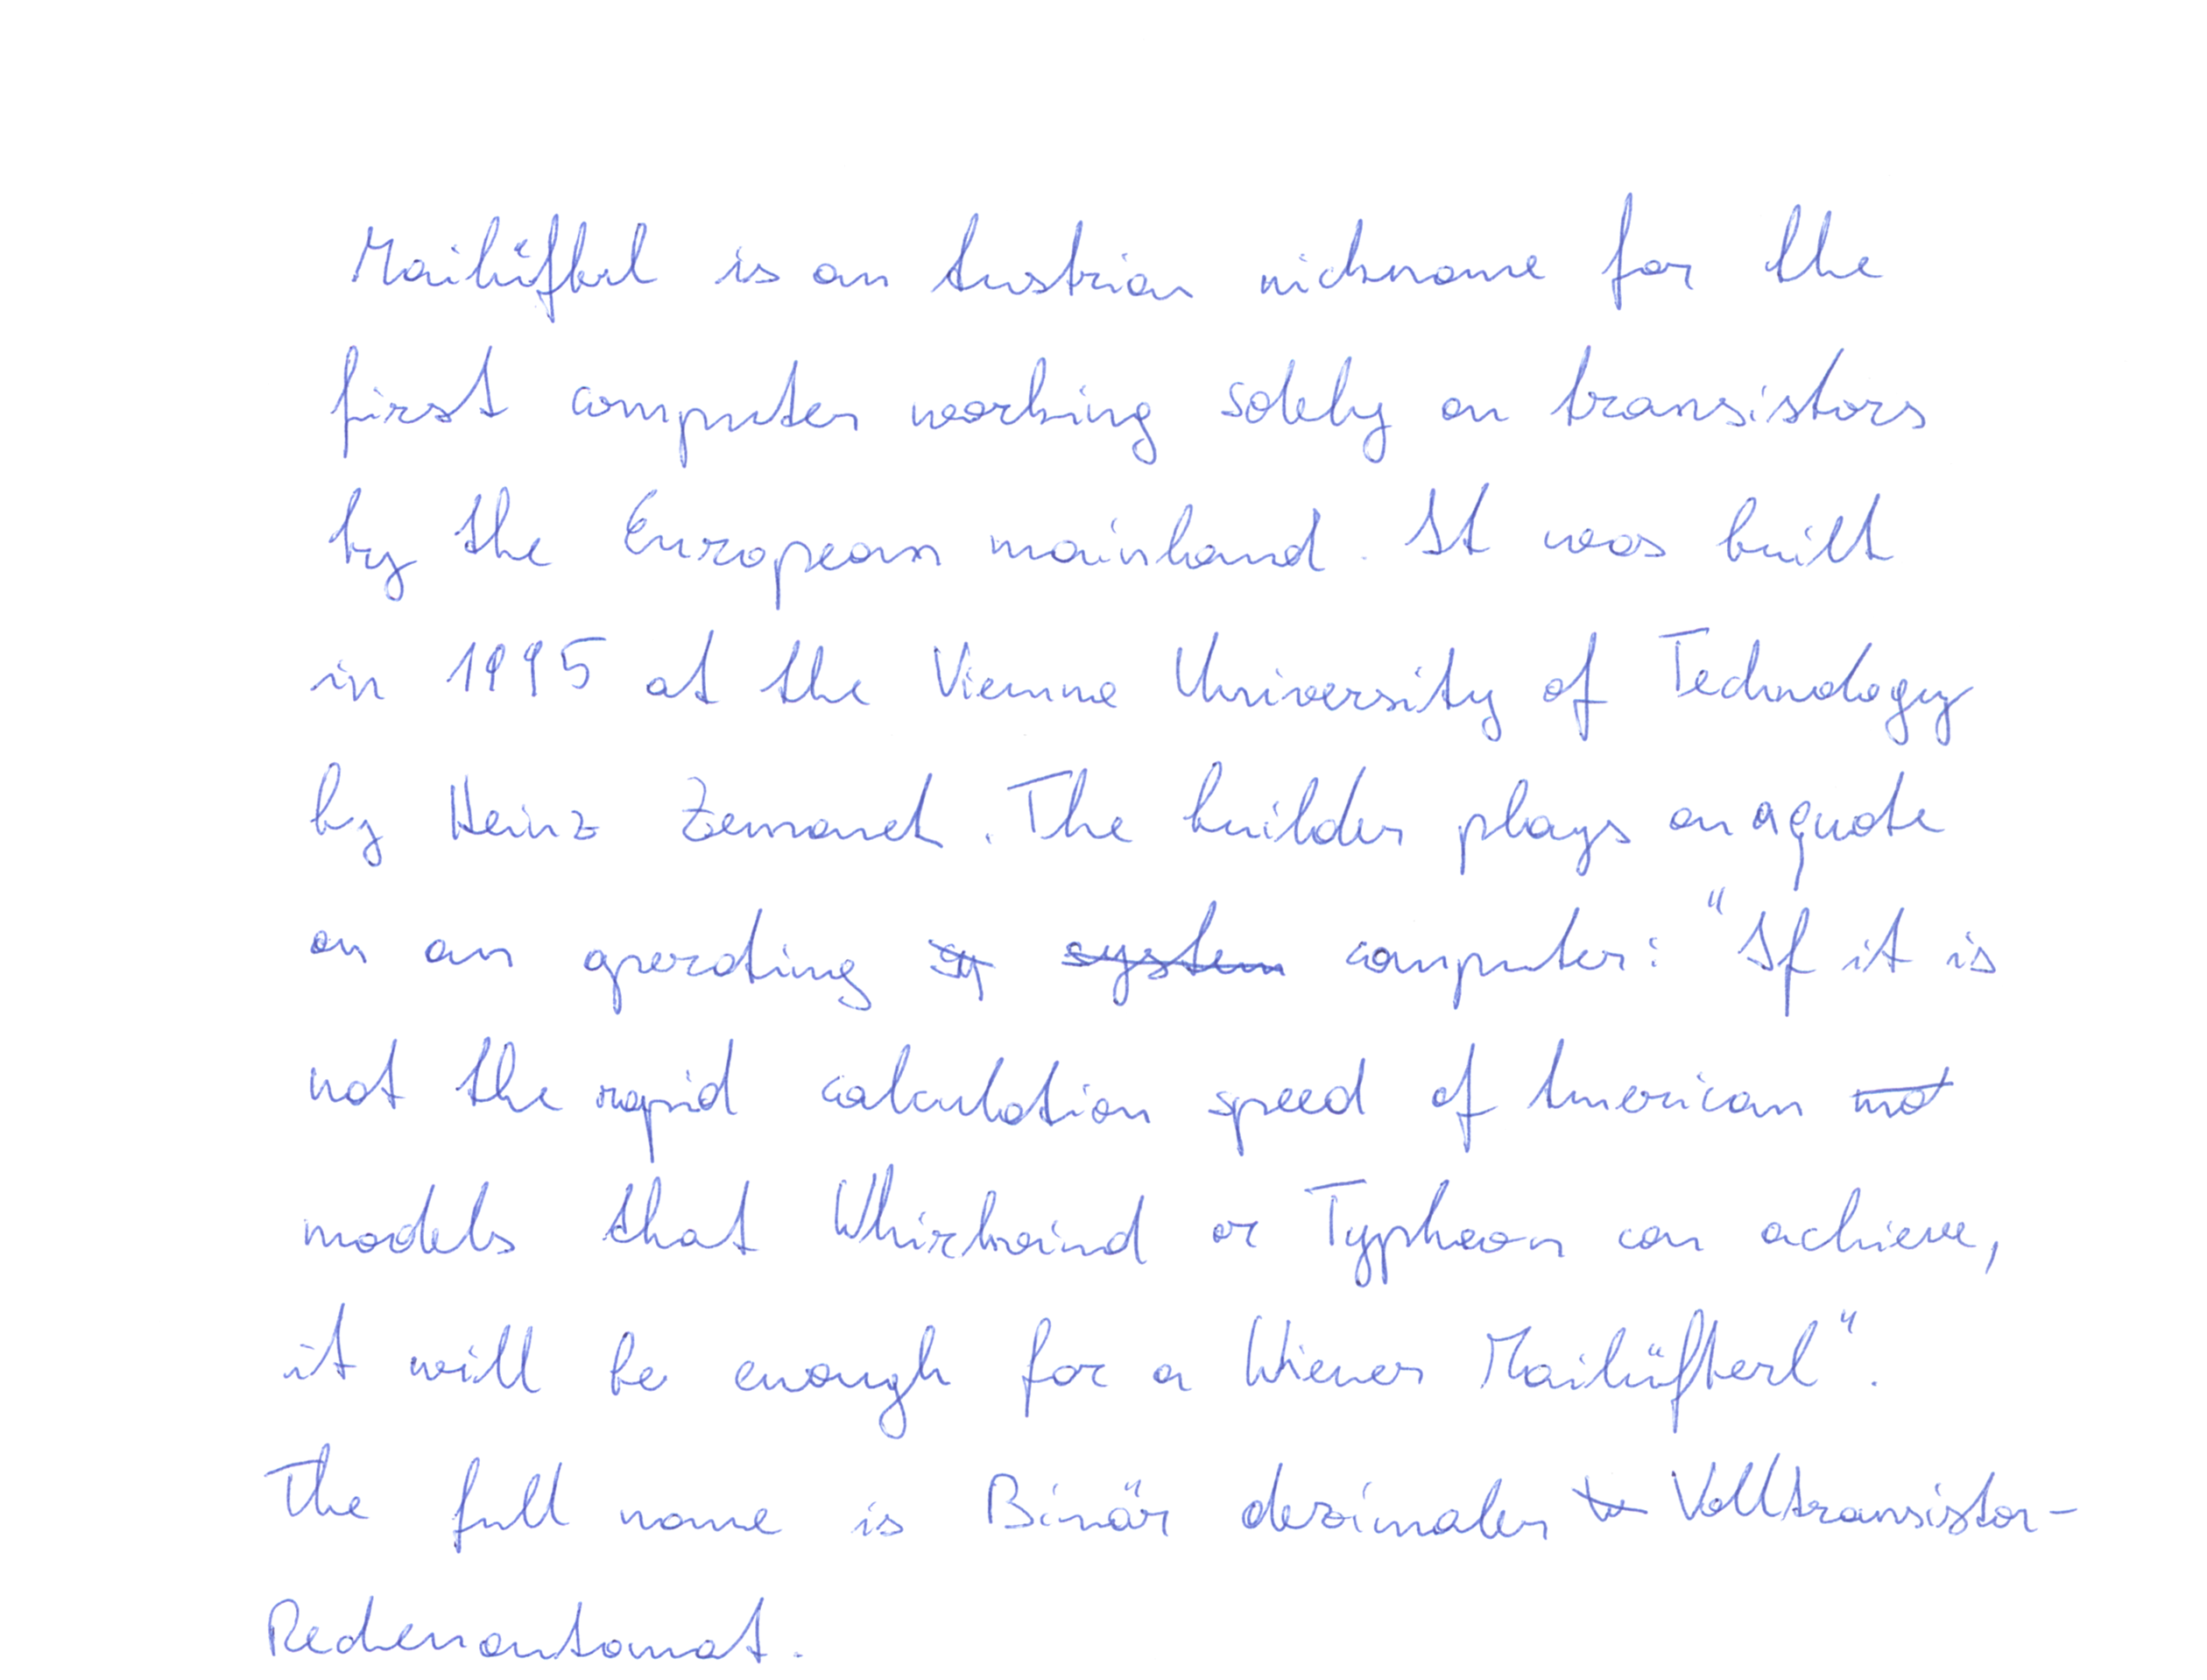 Mailüfterl is an Austrian nickname for the
first computer working solely on transistors
by the European mainland. It was built
in 1995 at the Vienna University of Technology
by Heinz Zemanek. The builder plays on a quote
on an operating sy system computer: "If it is
not the rapid calculation speed of American mod
models that Whirlwind or Typhoon can achieve,
it will be enough for a Wiener Mailüfterl".
The full name is Binär dezimaler Volltransistor-
Rechenautomat.